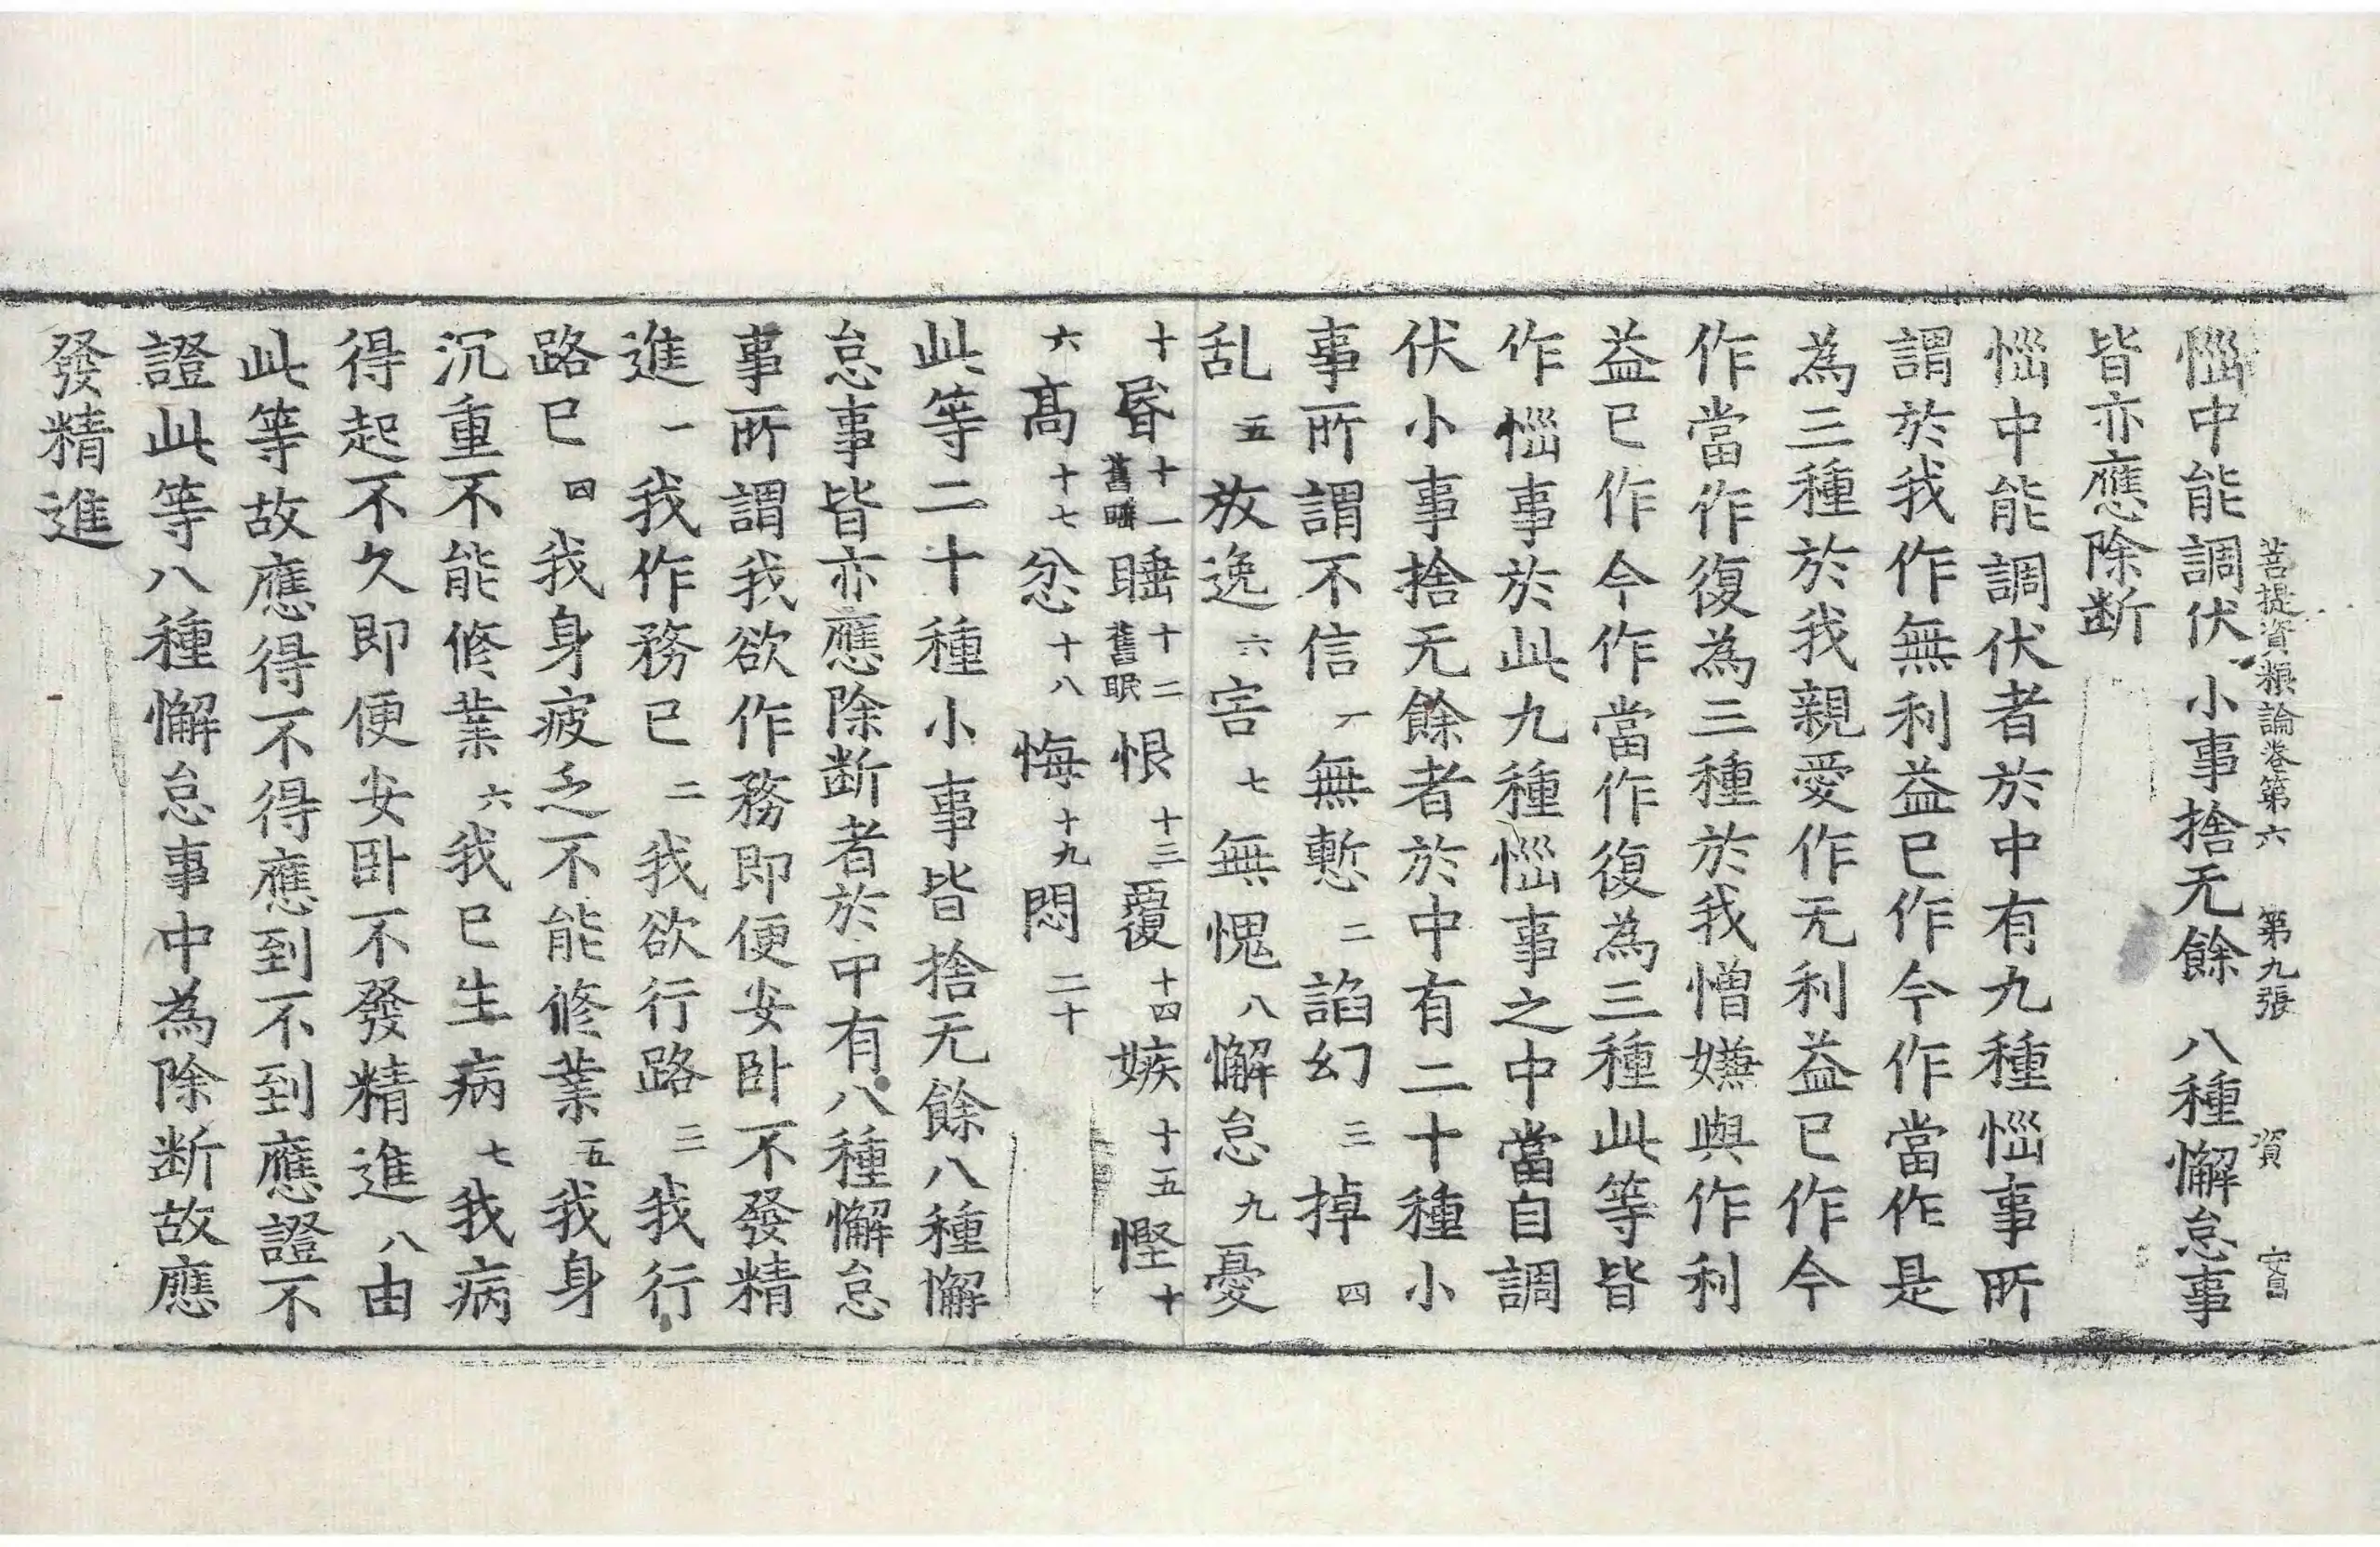 菩提資粮論卷第六　第九張　資
惱中能調伏　小事捨无餘　八種懈怠事
皆亦應除断
惱中能調伏者於中有九種惱事所
謂於我作無利益已作今作當作是
為三種於我親愛作无利益已作今
作當作復為三種於我憎嫌與作利
益已作今作當作復為三種此等皆
作惱事於此九種惱事之中當自調
伏小事捨无餘者於中有二十種小
事所謂不信一無慙二諂幻三掉四
乱五放逸六害七無愧八懈怠九憂
十㬱十一舊睡睡十二舊眠恨十三覆十四嫉十五慳十
六高十七忿十八悔十九悶二十
此等二十種小事皆捨无餘八種懈
怠事皆亦應除断者於中有八種懈怠
事所謂我欲作務即便安卧不發精
進一我作務已二我欲行路三我行
路已四我身疲乏不能修業五我身
沉重不能修業六我已生病七我病
得起不久即便安卧不發精進八由
此等故應得不得應到不到應證不
證此等八種懈怠事中為除断故應
發精進